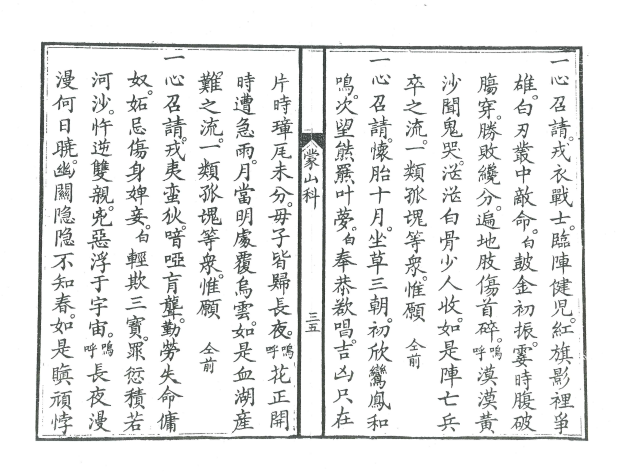 一心召請。戎衣戰士。臨陣健兒。紅旗影裡爭
雄。白刃叢中敵命。白皷金初振。霎時腹破
膓穿。勝敗纔分。遍地肢傷首碎。嗚呼漠漠黃
沙聞鬼哭。茫茫白骨少人收。如是陣亡兵
卒之流。一類孤塊等衆。惟願 仝前
一心召請。懷胎十月。坐草三朝。初欣鸞鳳和
鳴。次望熊羆叶夢。白奉恭欲唱。吉凶只在
蒙山科
三五
片時璋瓦未分。毋子皆歸長夜。嗚呼花正開
時遭急雨。月當明處覆烏雲。如是血湖產
難之流。一類孤塊等衆。惟願 仝前
一心召請。戎夷蛮狄。喑啞盲聾。勤勞失命傭
奴。妬忌傷身婢妾。白輕欺三寳。罪愆積若
河沙。忤逆雙親。兇惡浮于宇宙。嗚呼長夜漫
漫何日曉。幽關隐隐不知春。如是瞋頑悖